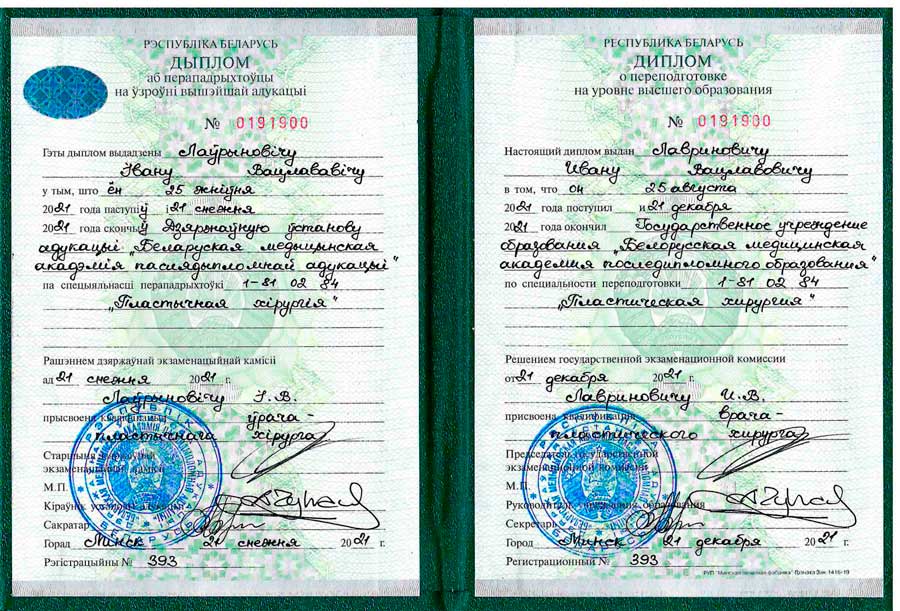 РЭСПУБЛІКА БЕЛАРУСЬ
ДЫПЛОМ
аб перападрыхтоўцы
на ўзроўні вышэйшай адукацыі
№ 0191900
Гэты дыплом выдадзены Лаўрыновічу
Івану Вацлававічу
у тым, што ён 25 жніўня
2021 года паступіў і 21 снежня
2021 года скончыў Дзяржаўную ўстанову
адукацыі „Беларуская медыцынская
акадэмія паслядыпломнай адукацыі"
па спецыяльнасці перападрыхтоўкі 1-81 02 84
„Пластычная хірургія"
Рашэннем дзяржаўнай экзаменацыйнай камісіі
ад 21 снежня 2021 г.
Лаўрыновічу І.В.
прысвоена кваліфікацыя ўрача-
пластычнага хірурга
Старшыня дзяржаўнай
экзаменацыйнай камісіі
М.П.
Кіраўнік установы адукацыі
Сакратар
Горад Мінск 21 снежня 2021 г.
Рэгістрацыйны № 393
РЕСПУБЛИКА БЕЛАРУСЬ
ДИПЛОМ
о переподготовке
на уровне высшего образования
№ 0191900
Настоящий диплом выдан Лавриновичу
Ивану Вацлавовичу
в том, что он 25 августа
2021 года поступил и 21 декабря
2021 года окончил Государственное учреждение
образования „Белорусская медицинская
академия последипломного образования"
по специальности переподготовки 1-81 02 84
„Пластическая хирургия"
Решением государственной экзаменационной комиссии
от 21 декабря 2021 г.
Лавриновичу И.В.
присвоена квалификация врача-
пластического хирурга
Председатель государственной
экзаменационной комиссии
М.П.
Руководитель учреждения образования
Секретарь
Город Минск 21 декабря 2021 г.
Регистрационный № 393